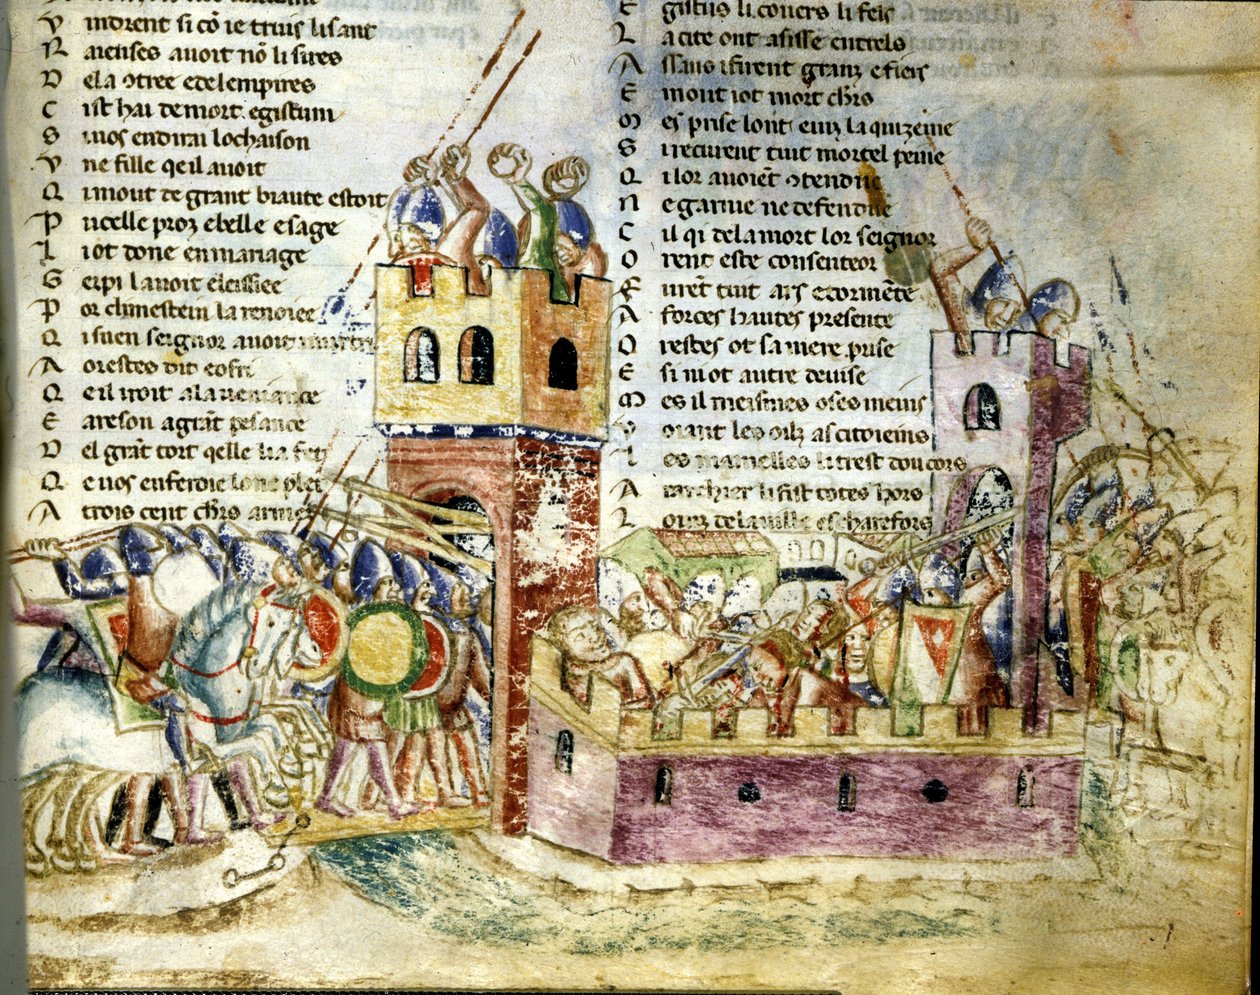 V indrent si cõ ie truis lisant
R aienses auoit nõ li sires
D el a 9tree e del empires
C ist hai de mort egistum
S i uos en dirai lochaison
V ne fille qe il auoit
Q i mout de grant biaute estoit
P ucelle proz e belle e sage
L i ot done en mariage
G erpi lauoit e leissiee
P or climestein la renoiee
Q i suen seignor auoit murtri
A orestes dit e ofri
Q e il iroit a la ueniance
E areson a grãt pesance
D el grãt tort qelle li a fait
Q e uos en feroie lonc plet
A trois cent chrs armez
E gistus li couers li feis
L a cite ont asisse entrels
A ssaus i firent granz e fieis
E mout i ot mort chrs
M es prise lont einz la quizeine
S i recurent tuit mortel peine
Q i lor auoiẽt 9tendue
N e garnie ne defendue
C il qi de la mort lor seignor
O rent este consenteor
F urẽt tuit ars e tormẽte
A forces hautes presente
O restes ot sa mere prise
E si not autre deuise
M es il meismes o ses meins
V oiant les oilz as citoieins
L es mamelles li trest dou cors
A rachier li fist totes hors
L oinz de la uille es charefors